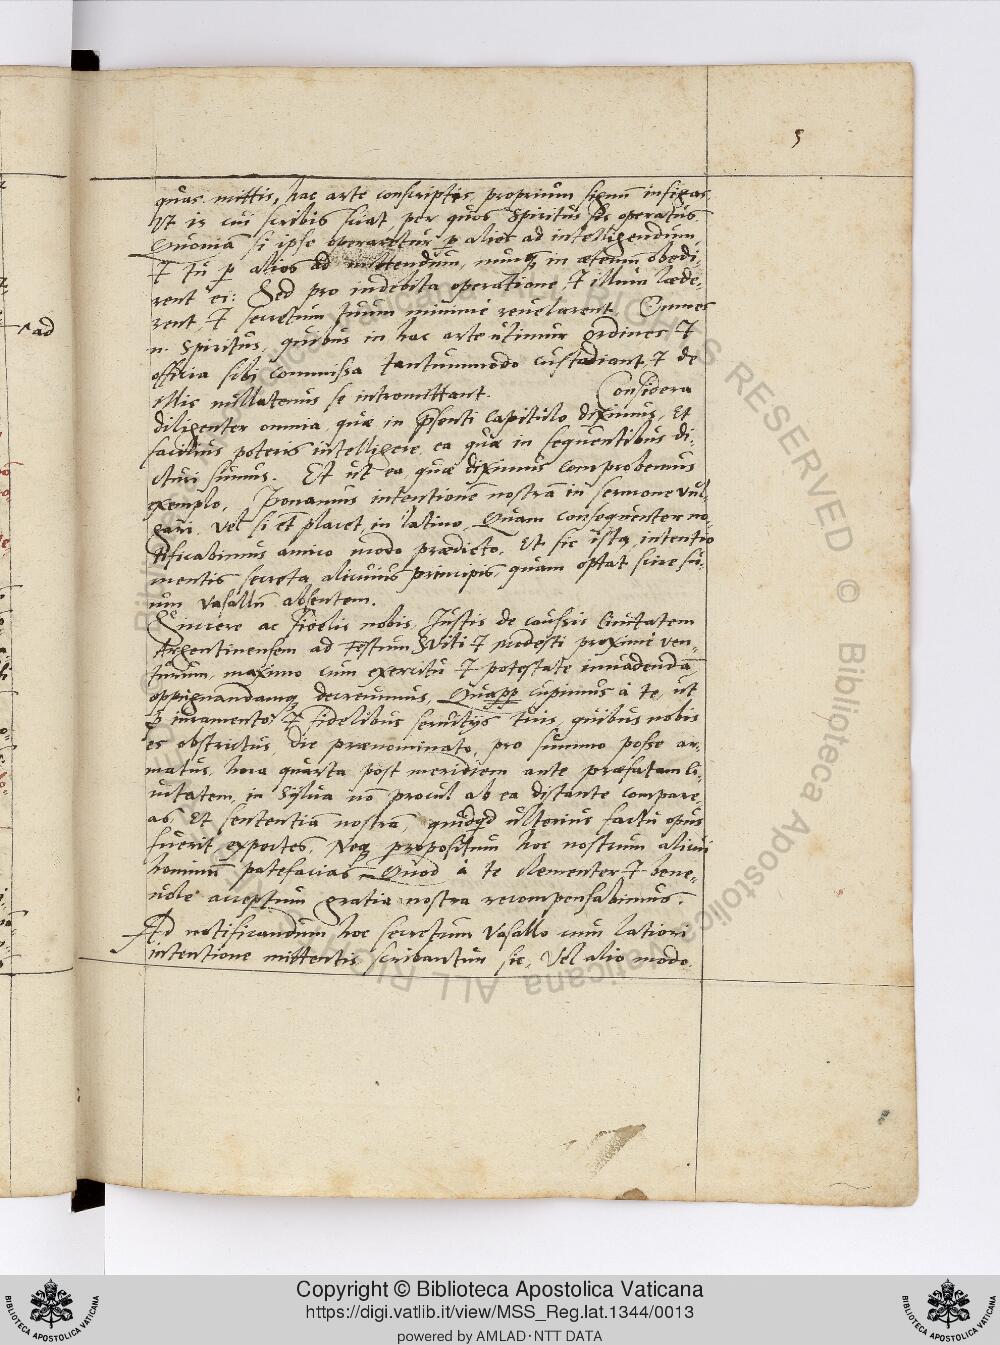 5
quas mittis, hac arte conscriptis, proprium signū infigas
Ut is cui scribis sciat, per quos Spiritus sis operatus.
Quoniā si ipse operaretur p alios ad intelligendum,
& tu p alios ad mittendum, nunq̃ in æternū obedi-
rent ei: Sed pro indebita operatione, & illum læde-
rent, & secretum tuum minime revelarent. Omnes
n. Spiritus, quibus in hac arte utimur ordines &
officia sibi commissa tantummodo custodiant, & de
illis nullatenus se intromittant. Considera
diligenter omnia, quæ in p̃senti Capitulo diximus, Et
facilius poteris intelligere, ea quæ in sequentibus di-
cturi sumus. Et ut ea quæ diximus comprobemus
exemplo, Ponamus intentionē nostrā in sermone vul-
gari, vel si et placet, in latino, Quam consequenter no-
tificabimus amico modo prædicto. Et sic ista intentio
mentis secreta alicuius principis, quam optat scire su-
um Vasallū absentem.
Sincere ac fidelis nobis, Justis de caussis Civitatem
Argentinensem ad Festum Viti & Modesti proxime ven-
turum, maximo cum exercitu & potestate invadendā
oppignandamq decrevimus, Quapp cupimus à te, ut
p iuramento & fidelibus servitijs tuis, quibus nobis
es obstrictus, die prænominato, pro summo posse ar-
matus, hora quarta post meridiem ante præfatam Ci-
vitatem, in Sylva nō procul ab ea distante compare-
as, Et sententiā nostrā, quidqd ulterius factū opus
fuerit, expectes, Neq propositum hoc nostrum alicui
hominū patefacias. Quod à te clementer & bene-
vole acceptum gratia nostra recompensabimus.
Ad notificandum hoc secretum Vasallo cum latiori
intentione mittentis scribantur sic, Vel alio modo.
^ad
Copyright © Biblioteca Apostolica Vaticana
https://digi.vatlib.it/view/MSS_Reg.lat.1344/0013
powered by AMLAD·NTT DATA
BIBLIOTECA APOSTOLICA VATICANA
BIBLIOTECA APOSTOLICA VATICANA
© Biblioteca Apostolica Vaticana ALL RIGHTS RESERVED